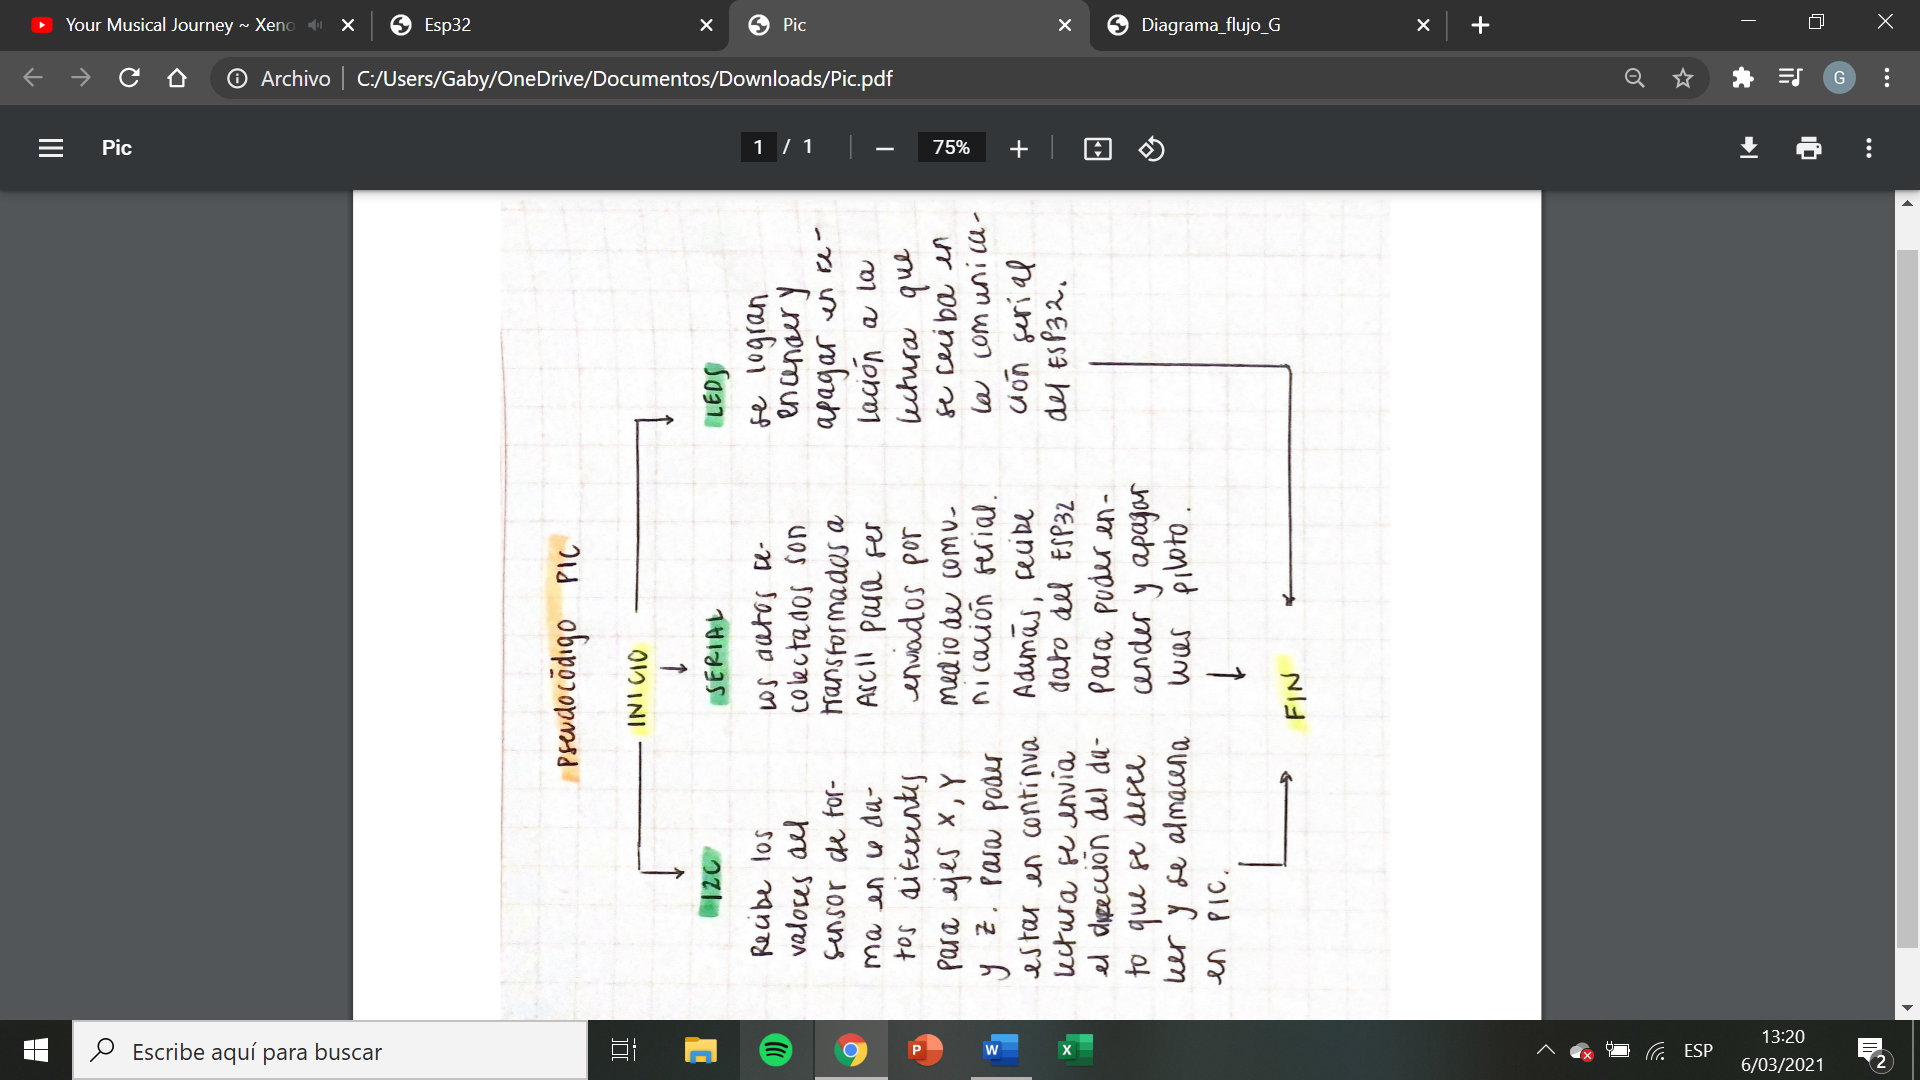 Your Musical Journey ~ Xeno
Esp32
Pic
Diagrama_flujo_G
Archivo
C:/Users/Gaby/OneDrive/Documentos/Downloads/Pic.pdf
G
Pic
1 / 1
75%
Pseudocódigo PIC
INICIO
I2C
Recibe los
valores del
sensor de for-
ma en 6 da-
tos diferentes
para ejes X, Y
y Z. Para poder
estar en continua
lectura se envia
el dirección del da-
to que se desee
leer y se almacena
en PIC.
SERIAL
Los datos re-
colectados son
transformados a
ASCII para ser
enviados por
medio de comu-
nicación serial.
Además, recibe
dato del ESP32
para poder en-
cender y apagar
luces piloto.
LEDS
Se logran
encender y
apagar en re-
lación a la
lectura que
se reciba en
la comunica-
ción serial
del ESP32.
FIN
Escribe aquí para buscar
P
W
X
ESP
13:20
6/03/2021
2